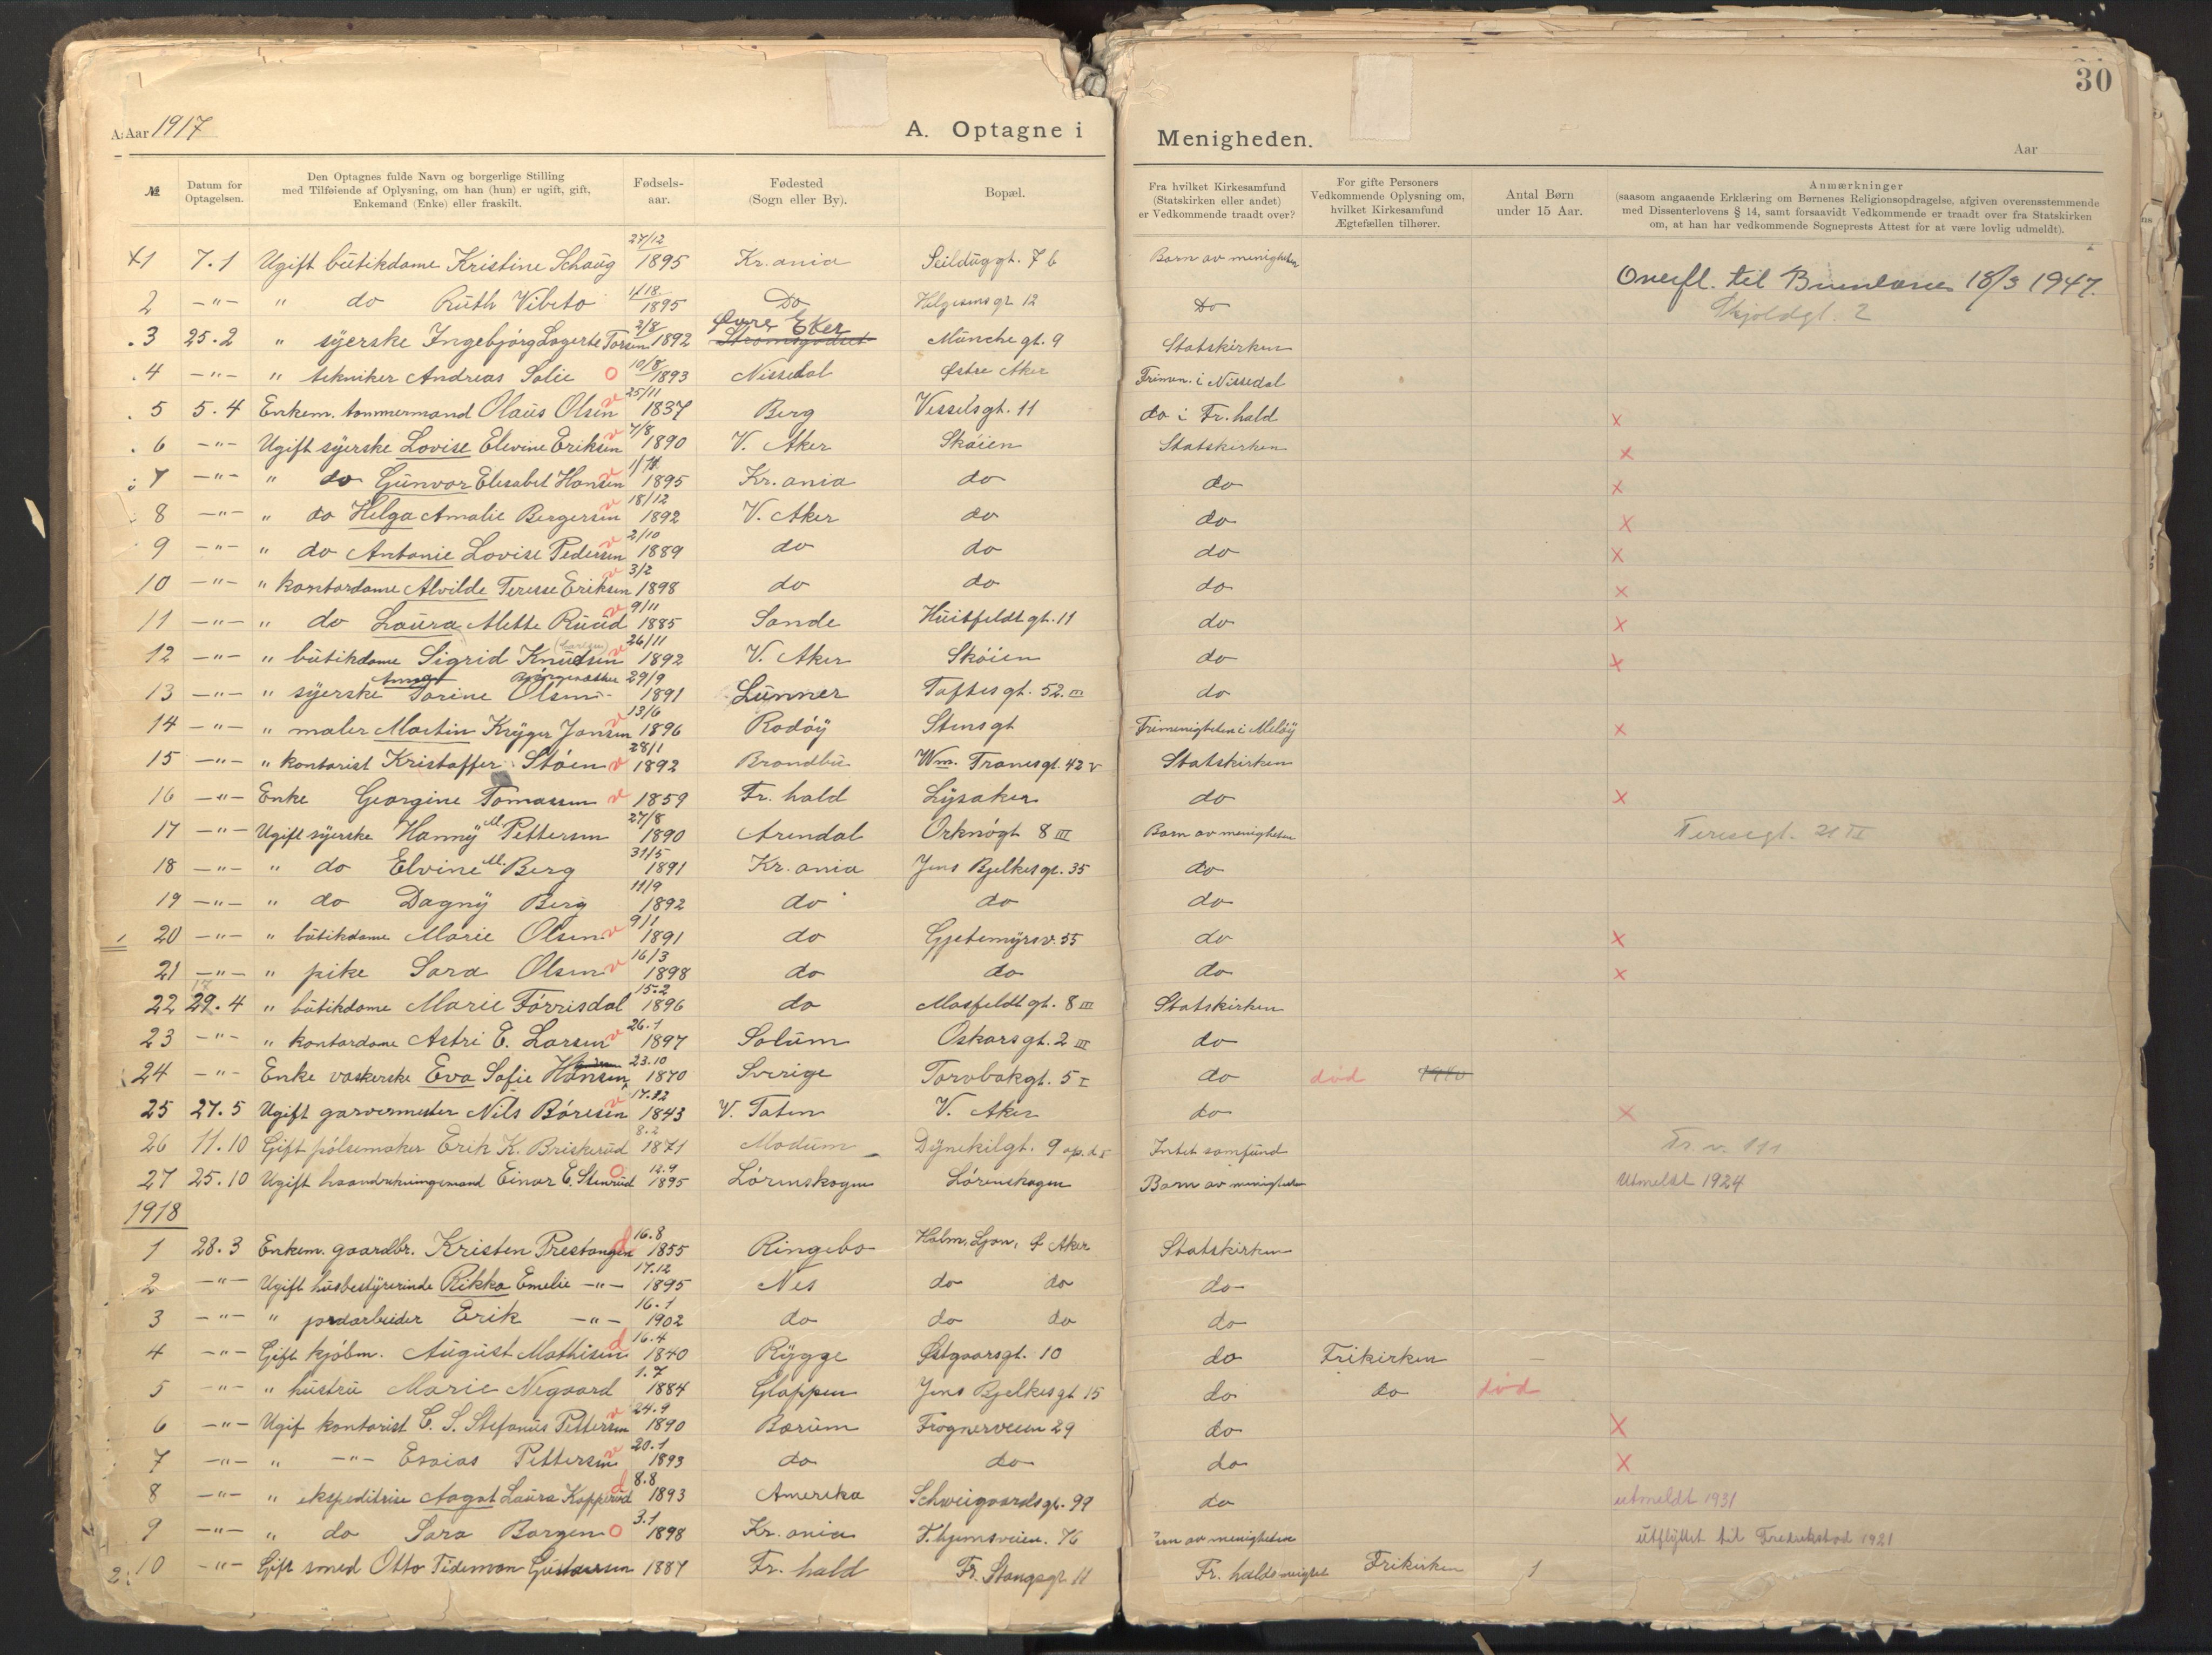 30
A: Aar 1917
A. Optagne i Menigheden.
Aar
№ | Datum for Optagelsen. | Den Optagnes fulde Navn og borgerlige Stilling med Tilføiende af Oplysning, om han (hun) er ugift, gift, Enkemand (Enke) eller fraskilt. | Fødsels-aar. | Fødested (Sogn eller By). | Bopæl. | Fra hvilket Kirkesamfund (Statskirken eller andet) er Vedkommende traadt over? | For gifte Personers Vedkommende Oplysning om, hvilket Kirkesamfund Ægtefællen tilhører. | Antal Børn under 15 Aar. | Anmærkninger (saasom angaaende Erklæring om Børnenes Religionsopdragelse, afgiven overensstemmende med Dissenterlovens § 14, samt forsaavidt Vedkommende er traadt over fra Statskirken om, at han har vedkommende Sogneprests Attest for at være lovlig udmeldt).
x1 7.1 Ugift butikdame Kristine Schaug 27/12 1895 Kr.ania Seilduggt. 7 b Barn av menigheten Overfl. til Brunlanes 18/3 1947.
2 -"- " do Ruth Vibeto 1895 Do Helgesensgt. 12 Do Skjoldgt. 2
3 25.2 " syerske Ingebjørg Lagerte Torsen 2/8 1892 Øvre Eker Strømsgodset Munchegt. 9 Statskirken
4 -"- " tekniker Andreas Solie o 10/8 1893 Nissedal Østre Aker Frimen. i Nissedal
5 5.4 Enkem. tømmermand Olaus Olsen v 25/11 1837 Berg Vesselsgt. 11 do i Fr.hald x
6 -"- Ugift syerske Lovise Elevine Eriksen v 7/8 1890 V. Aker Skøien Statskirken x
7 -"- " do Gunvor Elisabet Hansen v 1/11 1895 Kr.ania do do x
8 -"- " do Helga Amalie Bergersen v 18/12 1892 V. Aker do do x
9 -"- " do Antonie Lovise Pedersen v 2/10 1889 do do do x
10 -"- " kontordame Alvilde Terese Eriksen v 3/2 1898 do do do x
11 -"- " do Laura Mette Ruud v 9/11 1885 Sande Huitfeldtgt. 11 do x
12 -"- " butikdame Sigrid Knudsen v 26/11 1892 V. Aker Skøien do x
13 -"- " syerske Torine Olsen 29/9 1891 Lunner Toftesgt. 52 III do
14 -"- " maler Martin Krøger Jansen v 13/6 1896 Rødøy Stensgt Frimenigheten i Meløy x
15 -"- " kontorist Kristoffer Støen v 28/1 1892 Brandbu Wm. Tranesgt. 42 V Statskirken
16 -"- Enke Georgine Tomassen v 1859 Fr.hald Lysaker do x
17 -"- Ugift syerske Hanny M. Pettersen 27/8 1890 Arendal Orknøgt 8 III Barn av menigheten Teresegt. 21 II
18 -"- " do Elvine M. Berg 31/5 1891 Kr.ania Jens Bjelkesgt. 35 do
19 -"- " do Dagny Berg 11/9 1892 do do do
20 -"- " butikdame Marie Olsen v 9/1 1891 do Gjetemyrsv. 55 do x
21 -"- " pike Sara Olsen v 16/3 1898 do do do x
22 29.4 " butikdame Marie Førrisdal 15.2 1896 do Masfeldtgt. 8 III Statskirken
23 -"- " kontordame Astri E. Larsen v 26.1 1897 Solum Oskarsgt. 2 III do
24 -"- Enke vaskerske Eva Sofie Hansen 23.10 1870 Sverige Torvbakgt. 5 I do død 1940
25 27.5 Ugift garvermester Nils Børesen v 17.12 1843 V. Toten V. Aker do x
26 11.10 Gift pølsemaker Erik K. Briskerud 8.2 1871 Modum Dynekilgt. 9 Intet samfund Tr. v. 111
27 25.10 Ugift haandrukningsmand Einar E. Stenrud o 12.9 1895 Lørenskogen Lørenskogen Barn av menigheten Utmeldt 1924
1918
1 28.3 Enkem. gaardbr. Kristen Prestangen d 16.8 1855 Ringebo Holm, Ljan, Ø Aker Statskirken
2 -"- Ugift husbestyrerinde Rikka Emelie -"- 17.12 1895 Nes do do do
3 -"- " jordarbeider Erik -"- 16.1 1902 do do do do
4 -"- Gift kjøbm. August Mathisen d 16.4 1840 Rygge Østgaardsgt. 10 do Frikirken -
5 -"- " hustru Marie Negaard 1.7 1884 Gloppen Jens Bjelkesgt 15 do do død
6 -"- Ugif kontorist C. S. Stefanus Pettersen v 24.9 1890 Bærum Frognerveien 29 do x
7 -"- " -"- Esaias Pettersen v 20.1 1893 do do do x
8 -"- " ekspeditrise Aagot Laura Kopperud d 8.8 1893 Amerika Schweigaardsgt. 99 do utmeldt 1931
9 -"- " do Sara Borgen o 3.1 1898 Kr.ania T.hjemsveien. 76 Barn av menigheten utflyttet til Fredrikstad 1921
10 -"- Gift smed Otto Tideman Gustavsen 1887 Fr.hald Fr. Stangsgt 11 Fr.halds meighet Frikirken 1